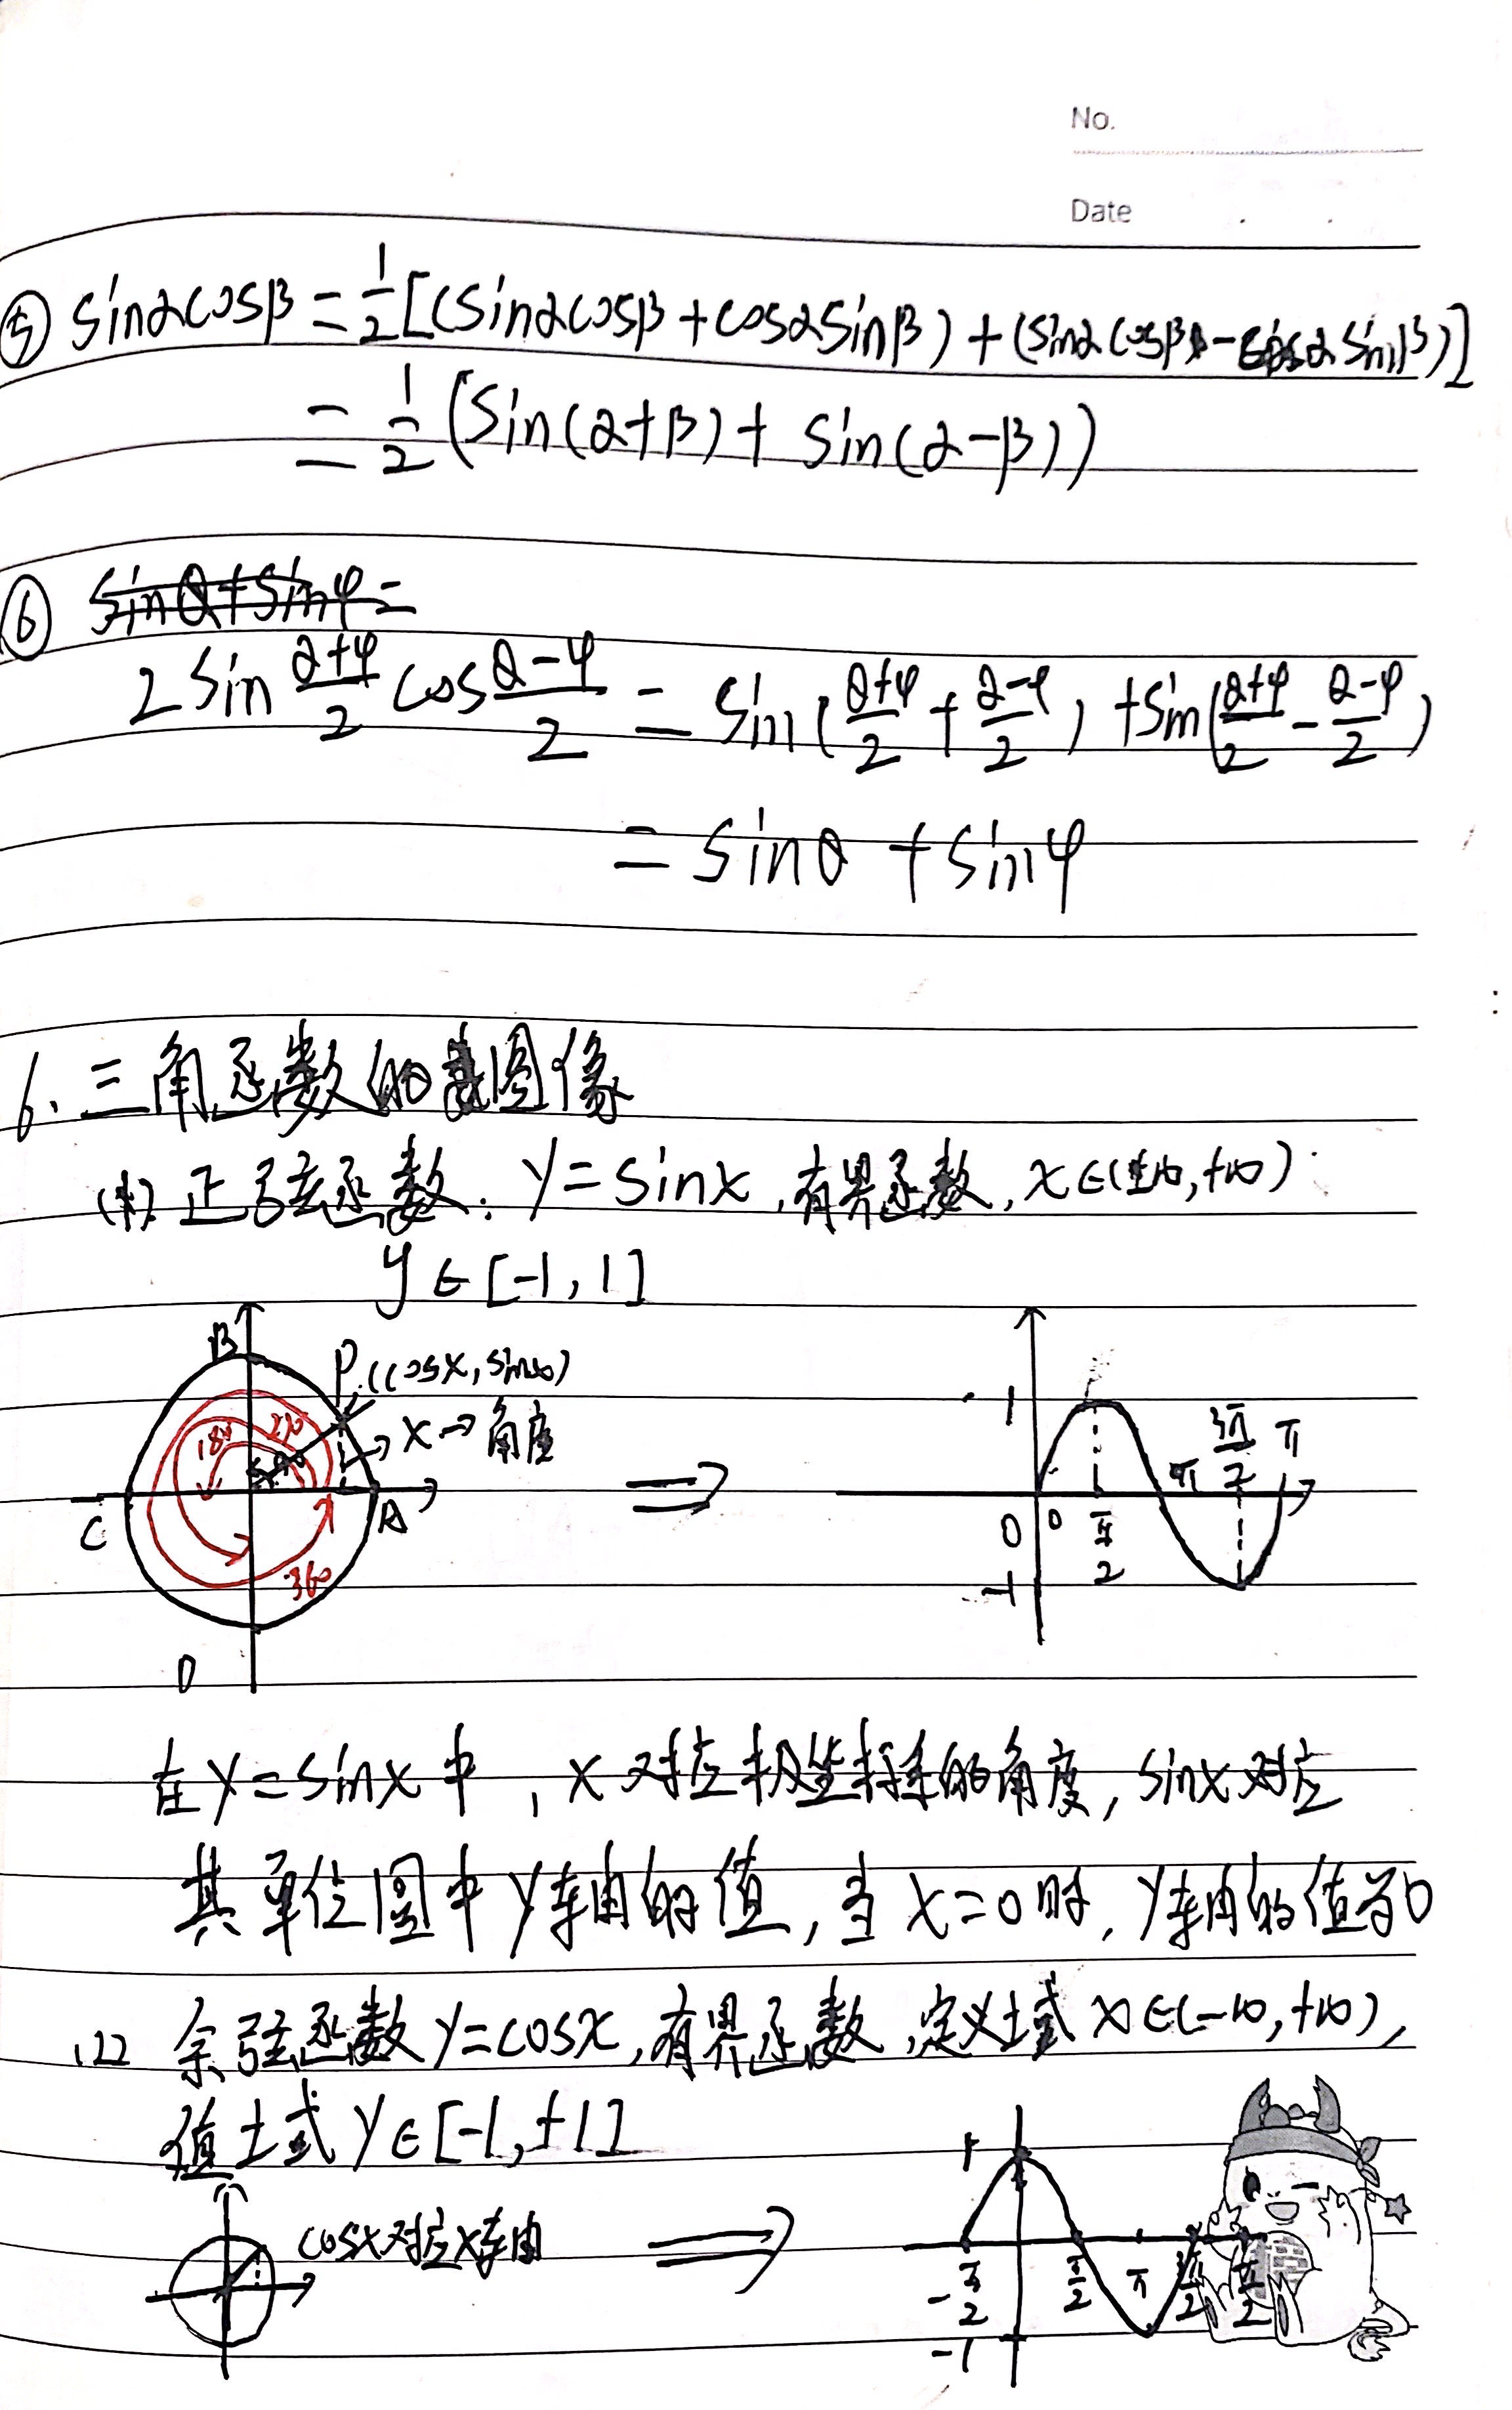 No.
Date
⑤ sinαcosβ = 1/2[(sinαcosβ + cosαsinβ) + (sinαcosβ - cosαsinβ)]
= 1/2 (sin(α+β) + sin(α-β))
⑥ sinθ+sinφ=
2 sin (θ+φ)/2 cos (θ-φ)/2 = sin((θ+φ)/2 + (θ-φ)/2) + sin((θ+φ)/2 - (θ-φ)/2)
= sinθ + sinφ
6. 三角函数的图像
(1) 正弦函数: y = sinx, 有界函数, x∈(-∞,+∞)
y∈[-1,1]
B
P (cosx, sinx)
x → 角度
180
270
90
C
A
360
D
⇒
1
3π/2
π
π
0
0
π/2
-1
在y=sinx中, x对应极坐标系的角度, sinx对应
其单位圆中y轴的值, 当x=0时, y轴的值为0
(2) 余弦函数y=cosx, 有界函数, 定义域x∈(-∞,+∞),
值域y∈[-1,+1]
cosx对应x轴
⇒
1
-π/2
π/2
π
3π/2
-1